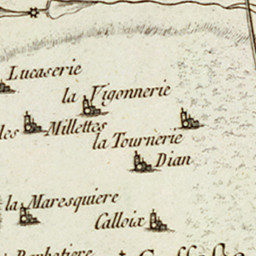 Lucaserie
la Vigonnerie
les Millettes
la Tournerie
Dian
la Maresquiere
Calloix